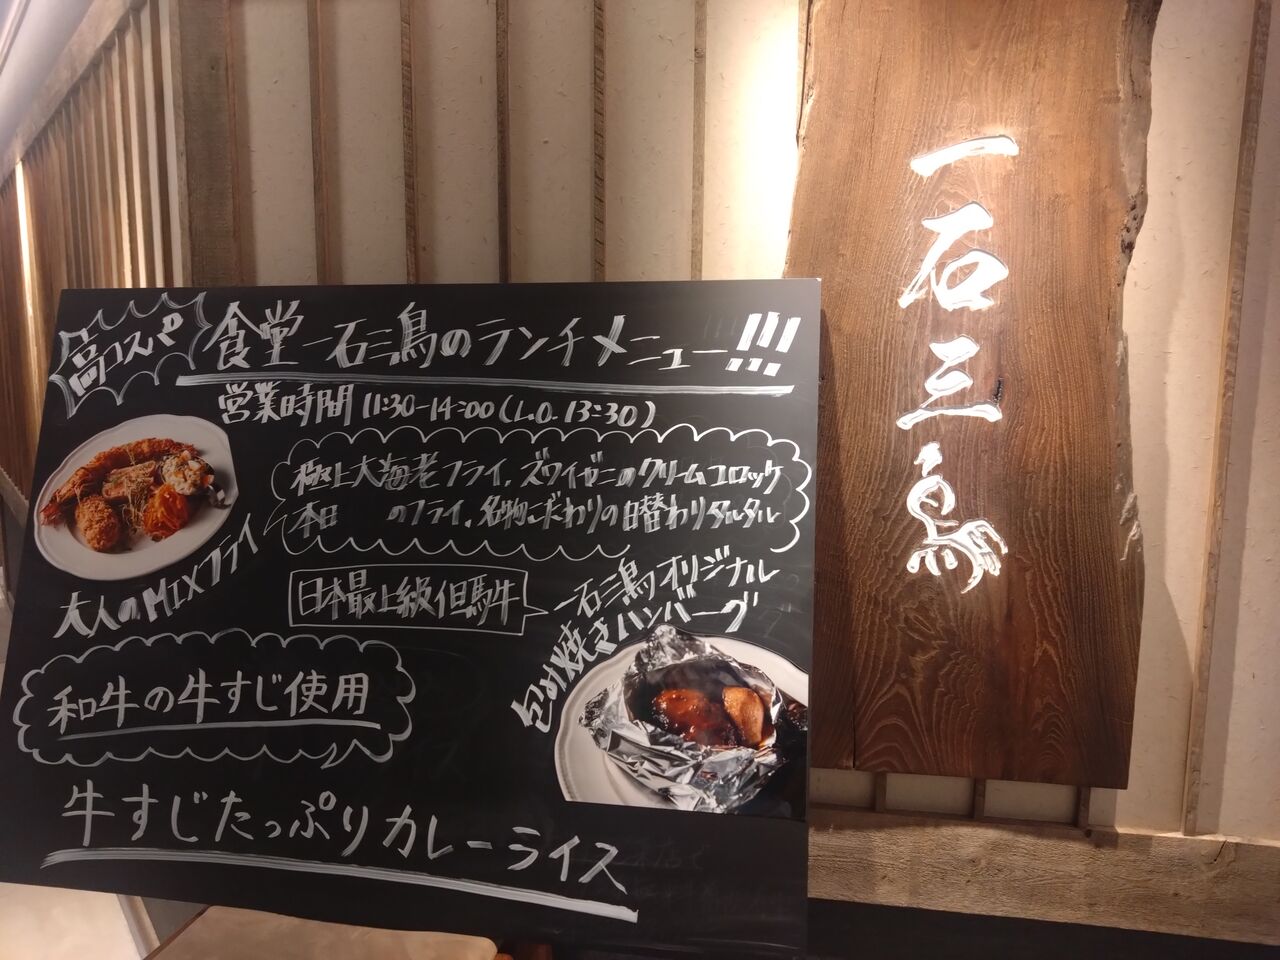 高コスパ
食堂一石三鳥のランチメニュー!!!
営業時間 11:30-14:00(L.O.13:30)
極上大海老フライ.ズワイガニのクリームコロッケ
本日 のフライ.名物こだわりの日替わりタルタル
大人のMIXフライ
日本最上級但馬牛
一石三鳥オリジナル
包み焼きハンバーグ
和牛の牛すじ使用
牛すじたっぷりカレーライス
一石三鳥